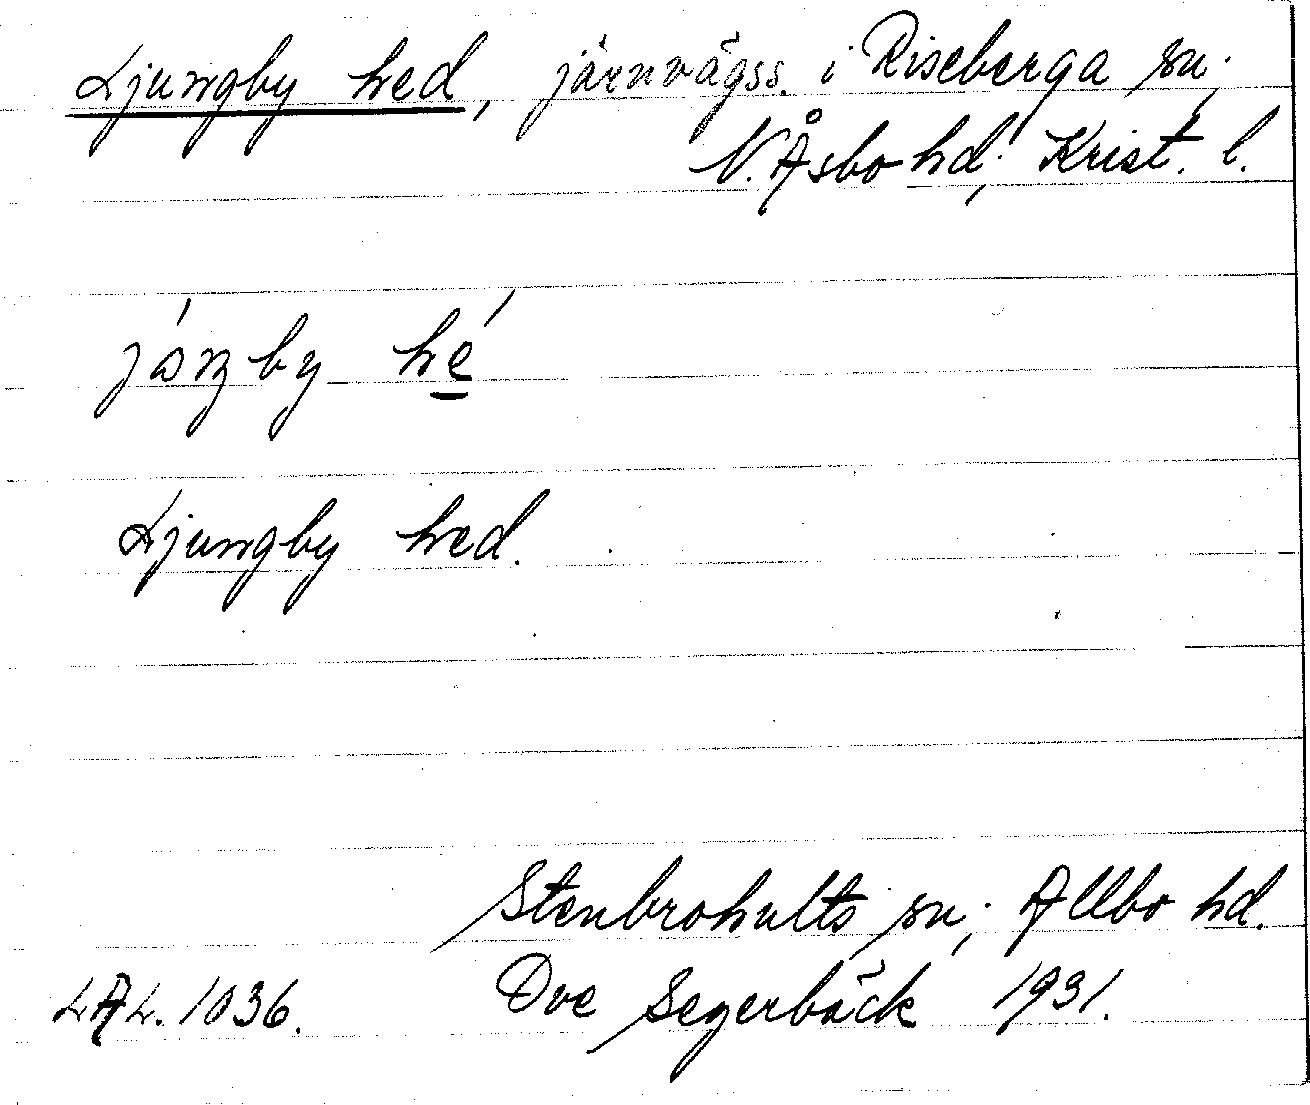 Ljungby hed, järnvägss. i Riseberga sn;
N. Åsbo hd; Krist. l.
jóŋby hé
Ljungby hed.
Stenbrohults sn; Allbo hd.
LAL. 1036. Ove Segerbäck 1931.